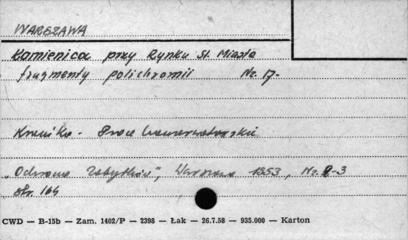 WARSZAWA
Kamienica przy Rynku St. Miasta
fragmenty polichromii Nr. 17-
Kronika - Prace konserwatorskie
"Ochrona Zabytków", Warszawa 1953, Nr. 2-3
str. 164
CWD — B-15b — Zam. 1402/P — 2398 — Łak — 26.7.58 — 935.000 — Karton